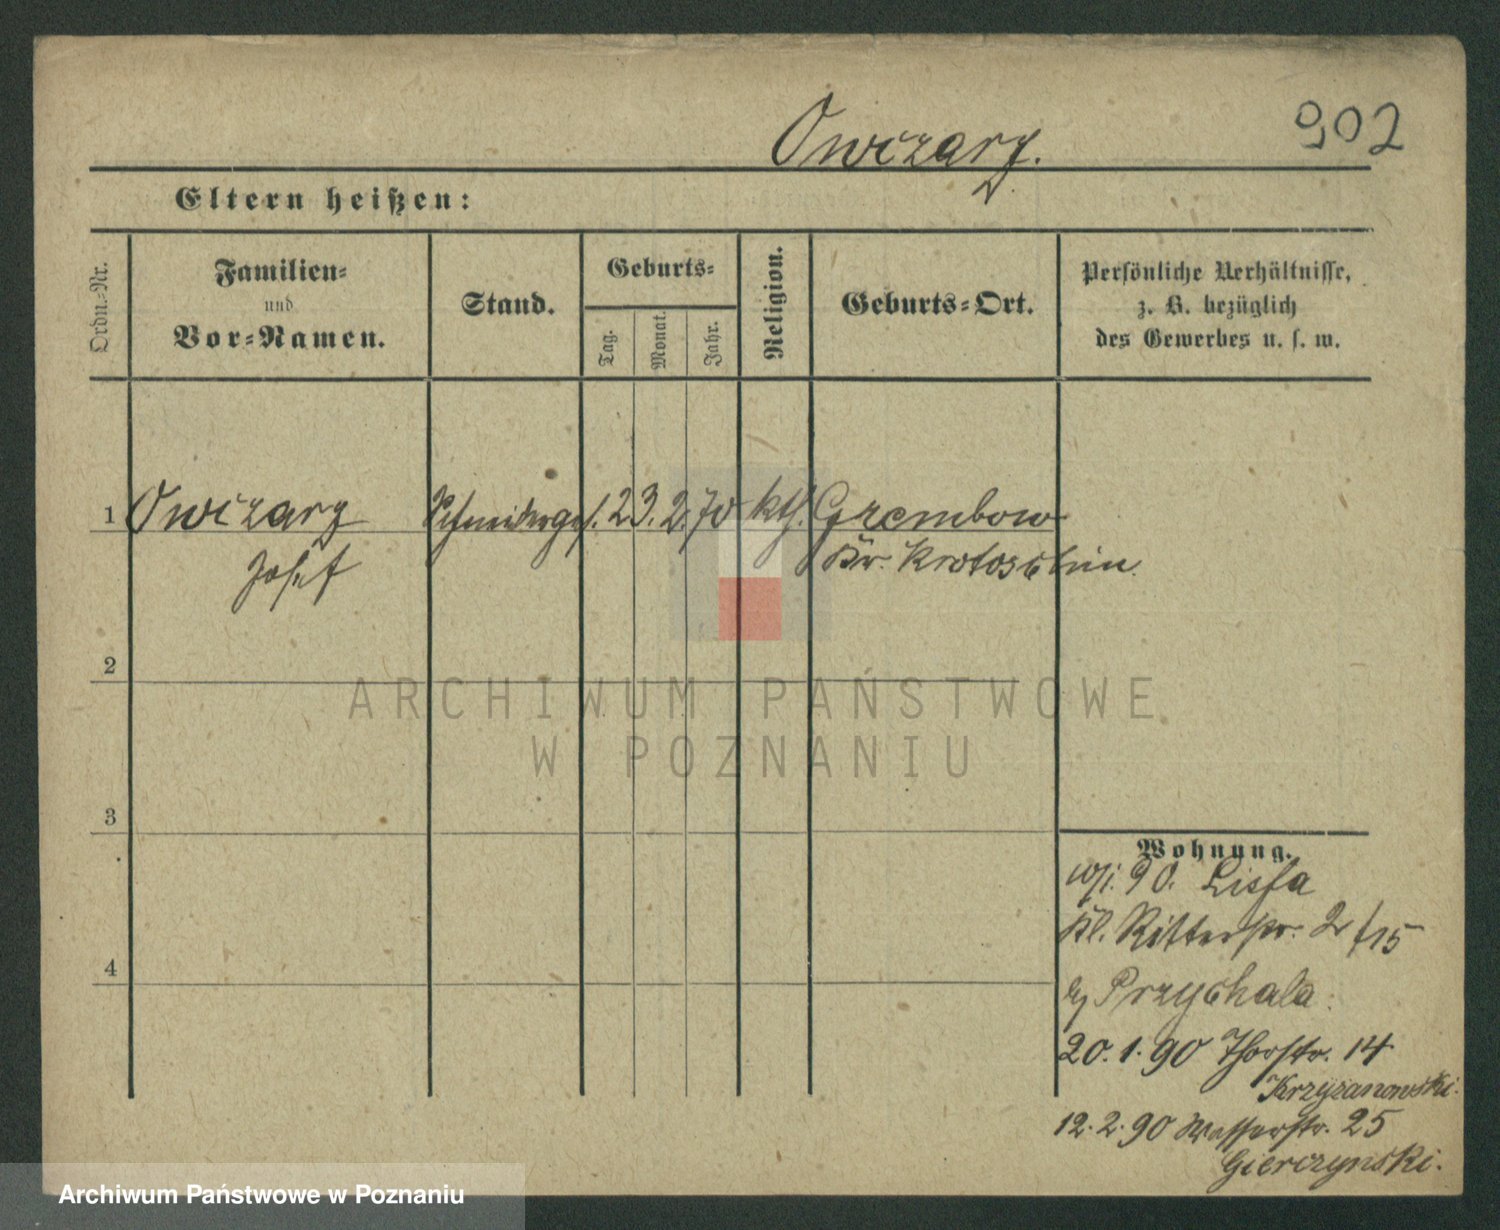 Owczarz.
902
Eltern heißen:
Ordn.-Nr.
Familien-
und
Vor-Namen.
Stand.
Geburts-
Tag.
Monat.
Jahr.
Religion.
Geburts-Ort.
Persönliche Verhältnisse,
z. B. bezüglich
des Gewerbes u. s. w.
1 Owczarz Schneiderges. 23. 2. 70 kth. Grembow
Josef Kr. Krotoschin
2
3
4
Wohnung.
90. Lissa
Kl. Ritterstr. 2 /15
Przychala
20. 1. 90 Thorstr. 14
Krzyzanowski.
12. 2. 90 Wasserstr. 25
Gierczynski.
ARCHIWUM PAŃSTWOWE
W POZNANIU
Archiwum Państwowe w Poznaniu